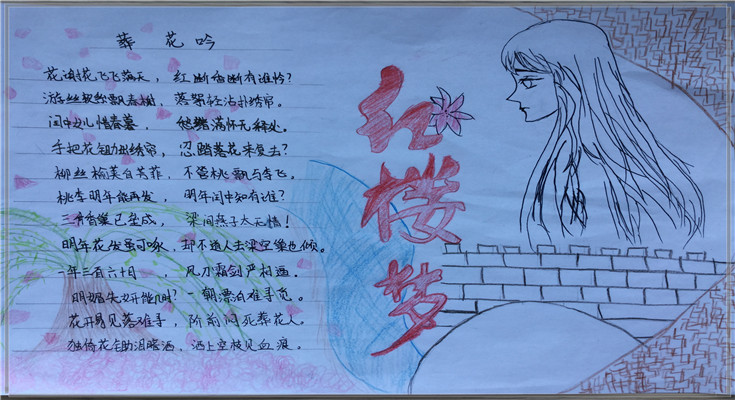 葬花吟
花谢花飞飞满天，红断香断有谁怜？
游丝软系飘春榭，落絮轻沾扑绣帘。
闺中女儿惜春暮，愁绪满怀无释处。
手把花锄出绣帘，忍踏落花来复去？
柳丝榆荚自芳菲，不管桃飘与李飞。
桃李明年能再发，明年闺中知有谁？
三月香巢已垒成，梁间燕子太无情！
明年花发虽可啄，却不道人去梁空巢也倾。
一年三百六十日，风刀霜剑严相逼。
明媚鲜妍能几时？一朝漂泊难寻觅。
花开易见落难寻，阶前闷死葬花人。
独倚花锄泪暗洒，洒上空枝见血痕。
红楼梦